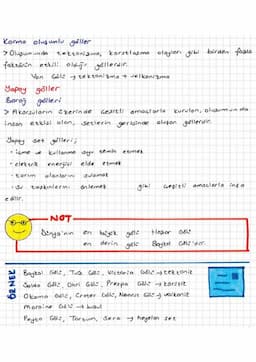 Karma oluşumlu göller
> Oluşumunda tektonizma, karstlaşma olayları gibi birden fazla
faktörün etkili olduğu göllerdir.
Van Gölü → tektonizma + volkanizma
Yapay göller
Baraj gölleri
> Akarsuların üzerinde çeşitli amaçlarla kurulan, oluşumunda
insan etkisi olan, setlerin gerisinde oluşan göllerdir.
Yapay set gölleri;
• içme ve kullanma suyu temin etmek
• elektrik enerjisi elde etmek
• tarım alanlarını sulamak
• su taşkınlarını önlemek gibi çeşitli amaçlarla inşa
edilir.
NOT
Dünya'nın en büyük gölü Hazar Gölü
en derin gölü Baykal Gölü'dür.
ÖRNEK
Baykal Gölü, Tuz Gölü, Victoria Gölü → tektonik
Salda Gölü, Ohri Gölü, Prespa Gölü → karstik
Okama Gölü, Crater Gölü, Nemrut Gölü → volkanik
Moraine Gölü → buzul
Tortum, Sera → heyelan set